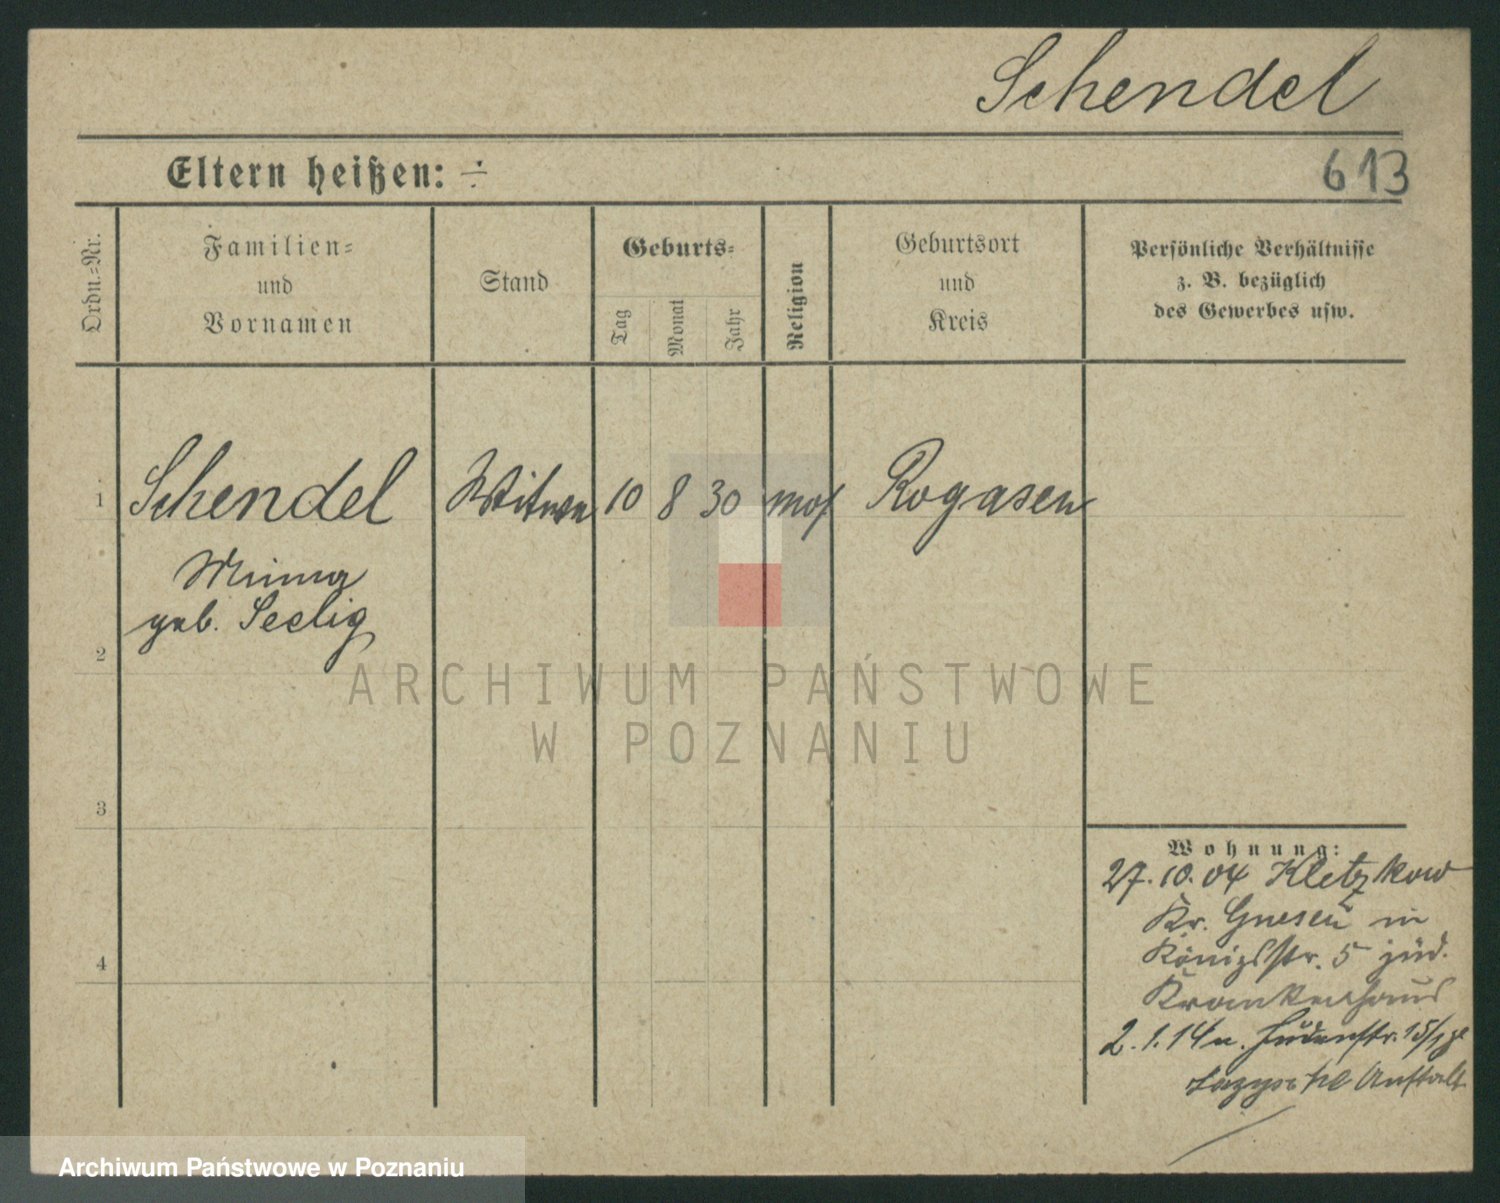 Schendel
Eltern heißen: ÷
613
Ordn.-Nr.
Familien-
und
Vornamen
Stand
Geburts-
Tag
Monat
Jahr
Religion
Geburtsort
und
Kreis
Persönliche Verhältnisse
z. B. bezüglich
des Gewerbes usw.
1 Schendel Witwe 10 8 30 mos Rogasen
Minna
geb. Seelig
2
3
4
Wohnung:
27.10.04 Kletzkow
Kr. Gnesen in
Königsstr. 5 jüd.
Krankenhaus
2.1.14 n. Judenstr. 15/
Anstalt
ARCHIWUM PAŃSTWOWE
W POZNANIU
Archiwum Państwowe w Poznaniu